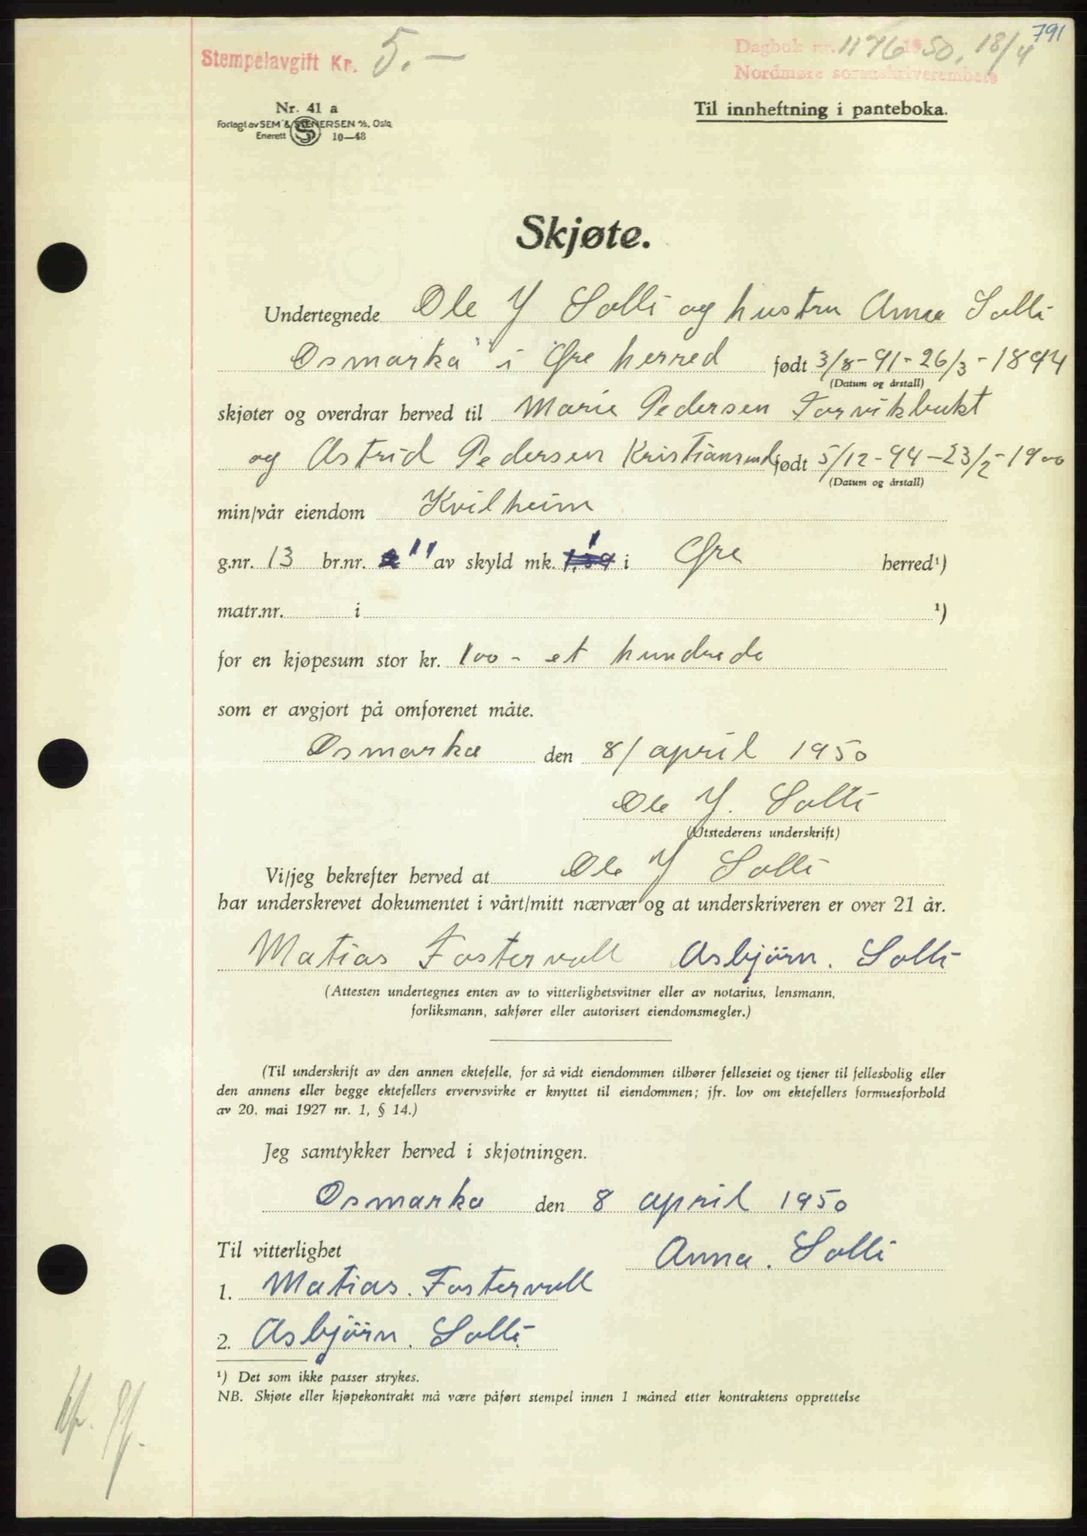 791
Stempelavgift Kr. 5.—
Dagbok nr. 1176 1950, 18/4
Nordmøre sorenskriverembete
Nr. 41 a
Forlagt av SEM & STENERSEN A/S, Oslo
Enerett S 10—48
Til innheftning i panteboka.
Skjøte.
Undertegnede Ole J Solli og hustru Anna Solli
Osmarka i Øre herred født 3/8-91-26/3-1894
(Datum og årstall)
skjøter og overdrar herved til Marie Pedersen Torvikbukt
og Astrid Pedersen Kristiansund født 5/12-94-23/2-1900
(Datum og årstall)
min/vår eiendom Kvilheim
g.nr. 13 br.nr. 11 av skyld mk. 1 i Øre herred¹)
matr.nr. i ¹)
for en kjøpesum stor kr. 100 - et hundrede
som er avgjort på omforenet måte.
Osmarka den 8/ april 1950
Ole J. Solli
(Utstederens underskrift)
Vi/jeg bekrefter herved at Ole J Solli
har underskrevet dokumentet i vårt/mitt nærvær og at underskriveren er over 21 år.
Matias Fostervoll Asbjörn. Solli
(Attesten undertegnes enten av to vitterlighetsvitner eller av notarius, lensmann,
forliksmann, sakfører eller autorisert eiendomsmegler.)
(Til underskrift av den annen ektefelle, for så vidt eiendommen tilhører felleseiet og tjener til fellesbolig eller
den annens eller begge ektefellers ervervsvirke er knyttet til eiendommen; jfr. lov om ektefellers formuesforhold
av 20. mai 1927 nr. 1, § 14.)
Jeg samtykker herved i skjøtningen.
Osmarka den 8 april 1950
Til vitterlighet Anna. Solli
1. Matias. Fostervoll
2. Asbjörn. Solli
¹) Det som ikke passer strykes.
NB. Skjøte eller kjøpekontrakt må være påført stempel innen 1 måned etter kontraktens opprettelse